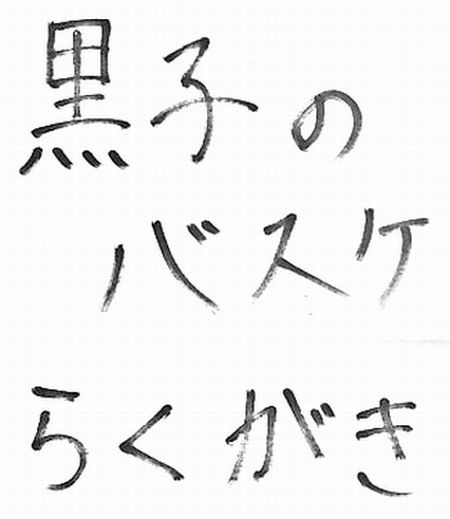 黒子の
バスケ
らくがき